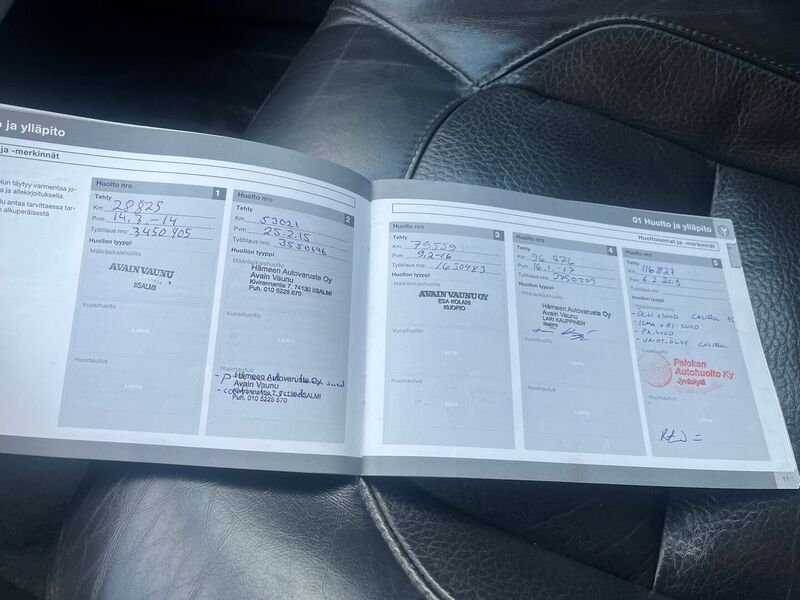 ja ylläpito
ja -merkinnät
täytyy varmentaa
ja allekirjoituksella.
antaa tarvittaessa
alkuperäisestä
Huolto nro 1
Tehty
Km 28825
Pvm 14.3.-14
Työtilaus nro: 3450905
Huollon tyyppi
Määräaikaishuolto
AVAIN VAUNU
IISALMI
Vuosihuolto
Leima
Huomautus
Leima
Huolto nro 2
Tehty
Km 53021
Pvm 25.2.15
Työtilaus nro: 3550646
Huollon tyyppi
Määräaikaishuolto
Hämeen Autovaruste Oy
Avain Vaunu
Kivirannantie 7, 74130 IISALMI
Puh. 010 5228 670
Vuosihuolto
Leima
Huomautus
Hämeen Autovaruste Oy
Avain Vaunu
Kivirannantie 7, 74130 IISALMI
Puh. 010 5228 670
01 Huolto ja ylläpito
Huoltoleimat ja -merkinnät
Huolto nro 3
Tehty
Km
Pvm 9.2-16
Työtilaus nro: 1650483
Huollon tyyppi
Määräaikaishuolto
AVAIN VAUNU OY
ESA KOLARI
KUOPIO
Vuosihuolto
Leima
Huomautus
Leima
Huolto nro 4
Tehty
Km 96876
Pvm 16.1.-17
Työtilaus nro: 3750209
Huollon tyyppi
Määräaikaishuolto
Hämeen Autovaruste Oy
Avain Vaunu
LARI KAUPPINEN
Iisalmi
Vuosihuolto
Leima
Huomautus
Leima
Huolto nro 5
Tehty
Km 116827
Pvm 6.2.2019
Työtilaus nro:
Huollon tyyppi
Määräaikaishuolto
CASTROL
Vuosihuolto
CASTROL
Palokan
Autohuolto Ky
Jyväskylä
Huomautus
Leima
11